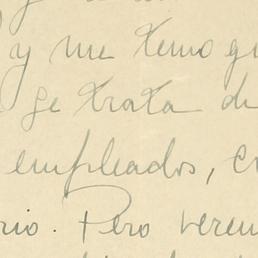 y me temo qu
se trata de
empleados, c
rio. Pero veren